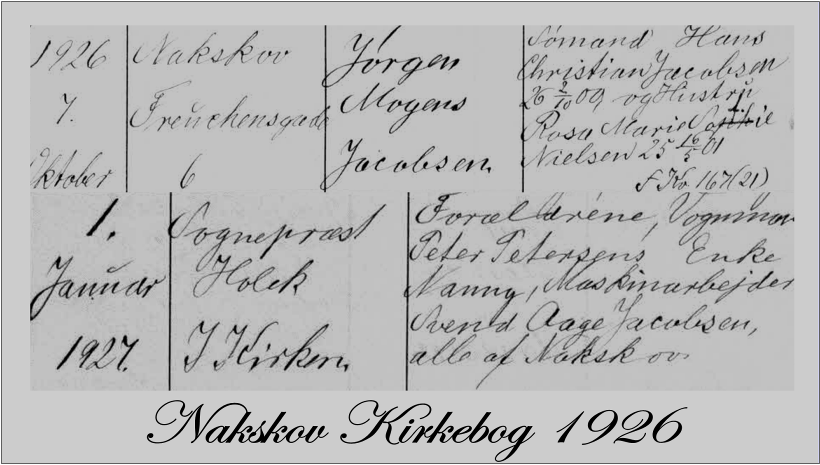 1926
7.
Oktober
Nakskov
Freuchensgade
6
Jørgen
Mogens
Jacobsen.
Sømand Hans
Christian Jacobsen
26 2/10 09 og Hustru
Rosa Marie
Nielsen 25 16/5 01
f. Ko. 167(21)
1.
Januar
1927.
Sognepræst
Holck
I Kirken
Forældrene, Vognman
Peter Petersens Enke
Nanny, Maskinarbejder
Svend Aage Jacobsen,
alle af Nakskov
Nakskov Kirkebog 1926